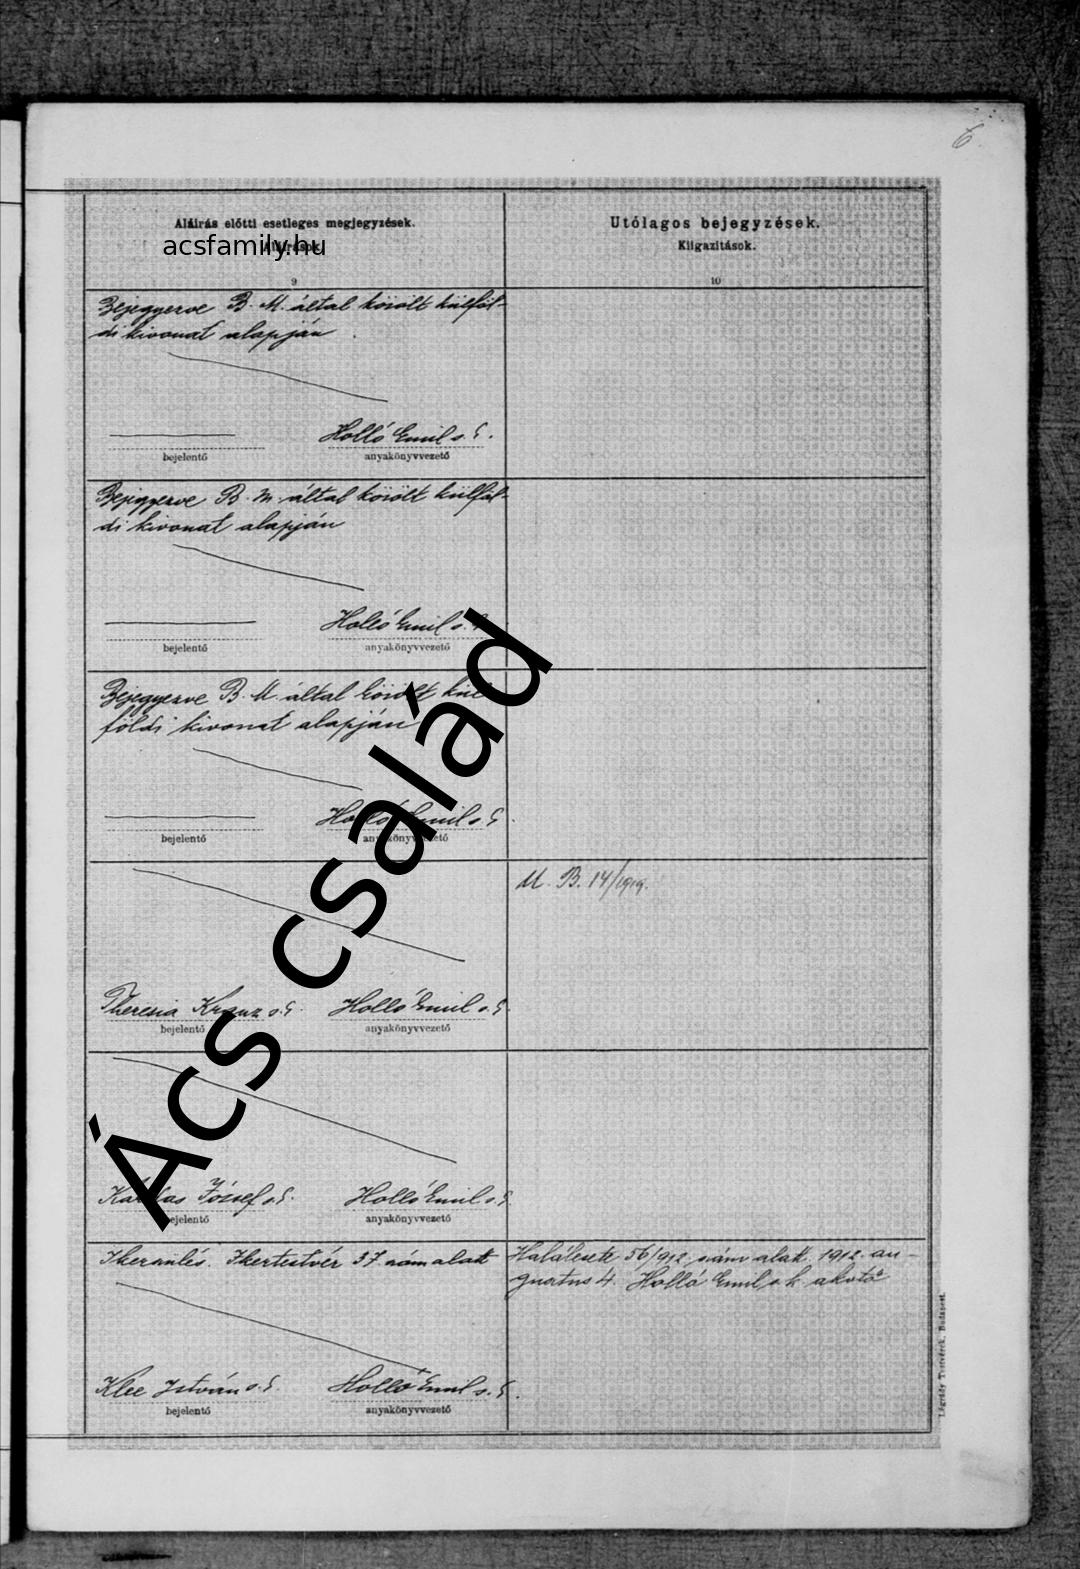 6
Aláirás előtti esetleges megjegyzések.
acsfamily.hu
9
Utólagos bejegyzések.
Kiigazitások.
10
Bejegyezve B. M. által közölt külföl-
di kivonat alapján
Holló Emil s. k.
bejelentő
anyakönyvvezető
Bejegyezve B. M. által közölt külföl-
di kivonat alapján
Holló Emil s. k.
bejelentő
anyakönyvvezető
Bejegyezve B. M. által közölt kül-
földi kivonat alapján
Holló Emil s. k.
bejelentő
anyakönyvvezető
M. B. 14/1919.
Theresia Kranz s. k.
Holló Emil s. k.
bejelentő
anyakönyvvezető
József s. k.
Holló Emil s. k.
bejelentő
anyakönyvvezető
Ikerszülés. Ikertestvér 37 szám alatt
Halálesete 56/912 szám alatt 1912. au-
gusztus 4. Holló Emil s. k.
Klee István s. k.
Holló Emil s. k.
bejelentő
anyakönyvvezető
Légrády Testvérek, Budapest.
Ács család